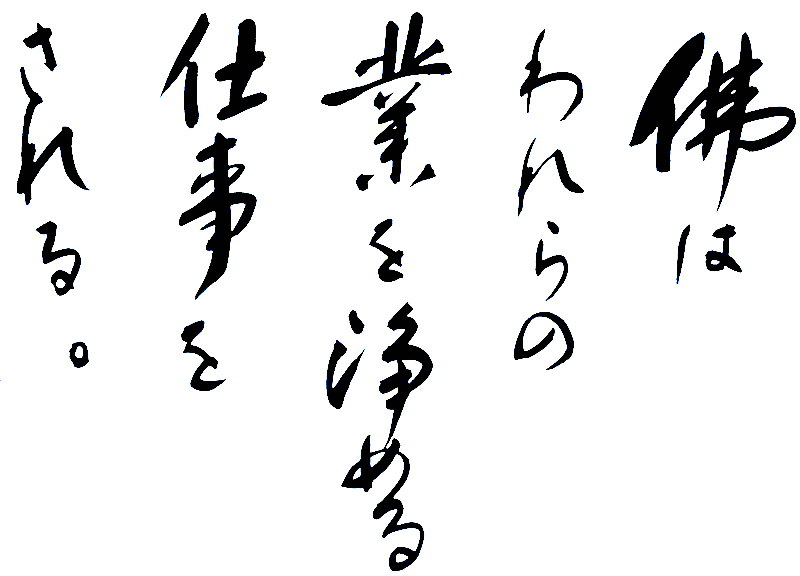 佛は
われらの
業を浄める
仕事を
される。